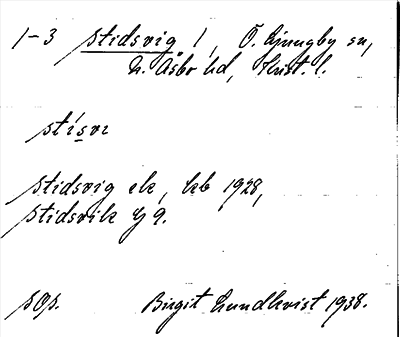 1-3 Stidsvig 1, Ö. Ljungby sn,
N. Åsbo hd, Krist. l.
stísvı
Stidsvig ek, kb 1928,
Stidsvik G 9.
sOp. Birgit Lundkvist 1938.